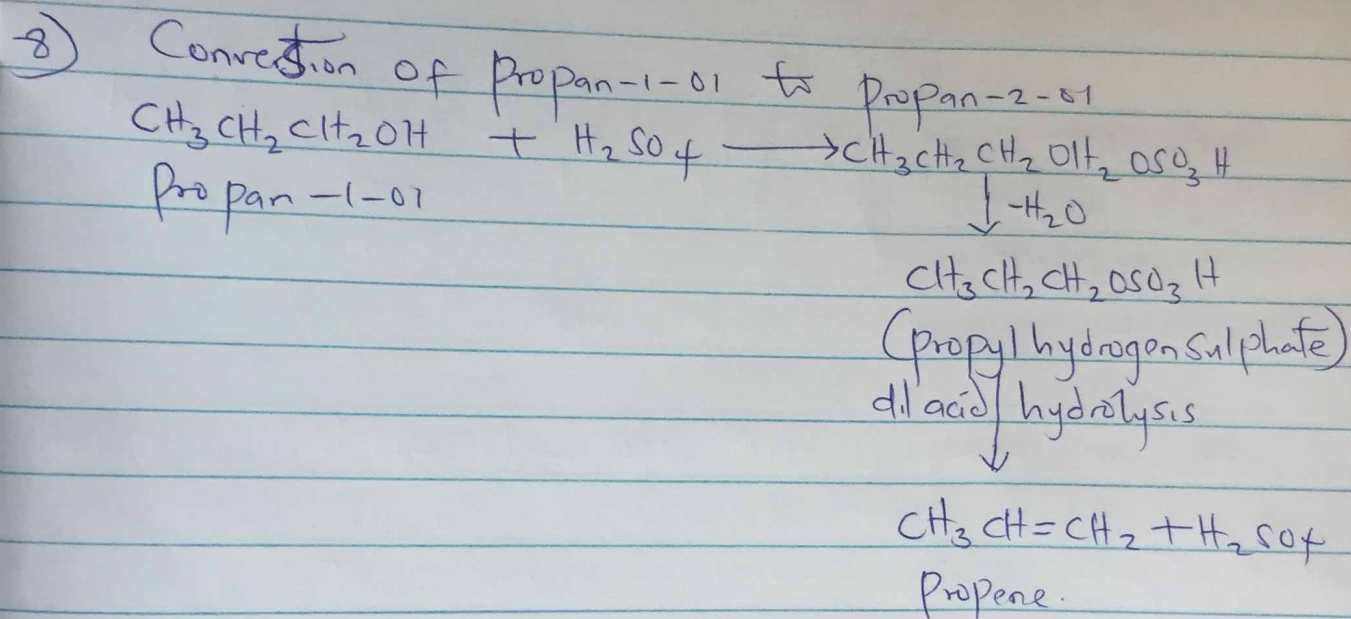 8) Convertion of Propan-1-ol to propan-2-ol
CH₃CH₂CH₂OH + H₂SO₄ ⟶ CH₃CH₂CH₂OH₂OSO₃H
Propan-1-ol
↓ -H₂O
CH₃CH₂CH₂OSO₃H
(propyl hydrogen sulphate)
dil acid ↓ hydrolysis
CH₃CH=CH₂ + H₂SO₄
Propene.